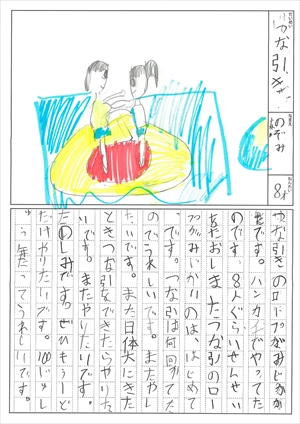 だいめい
つな引き
なまえ
のぞみ
ねんれい
8才
つな引きのロープがみじかか
たです。ハンカチでやってた
のです。8人ぐらいせんせい
たおしまたつな引のロー
プがみじかいのは、はじめて
です。つな引は何回かてた
のでうれしいです。またやし
たいです。また日体大にきた
ときつな引きできたらやりた
いです。またやりたいです。
たのしみです。ぜひもう一ど
だけやりたいです。100回
ってうれしいです。